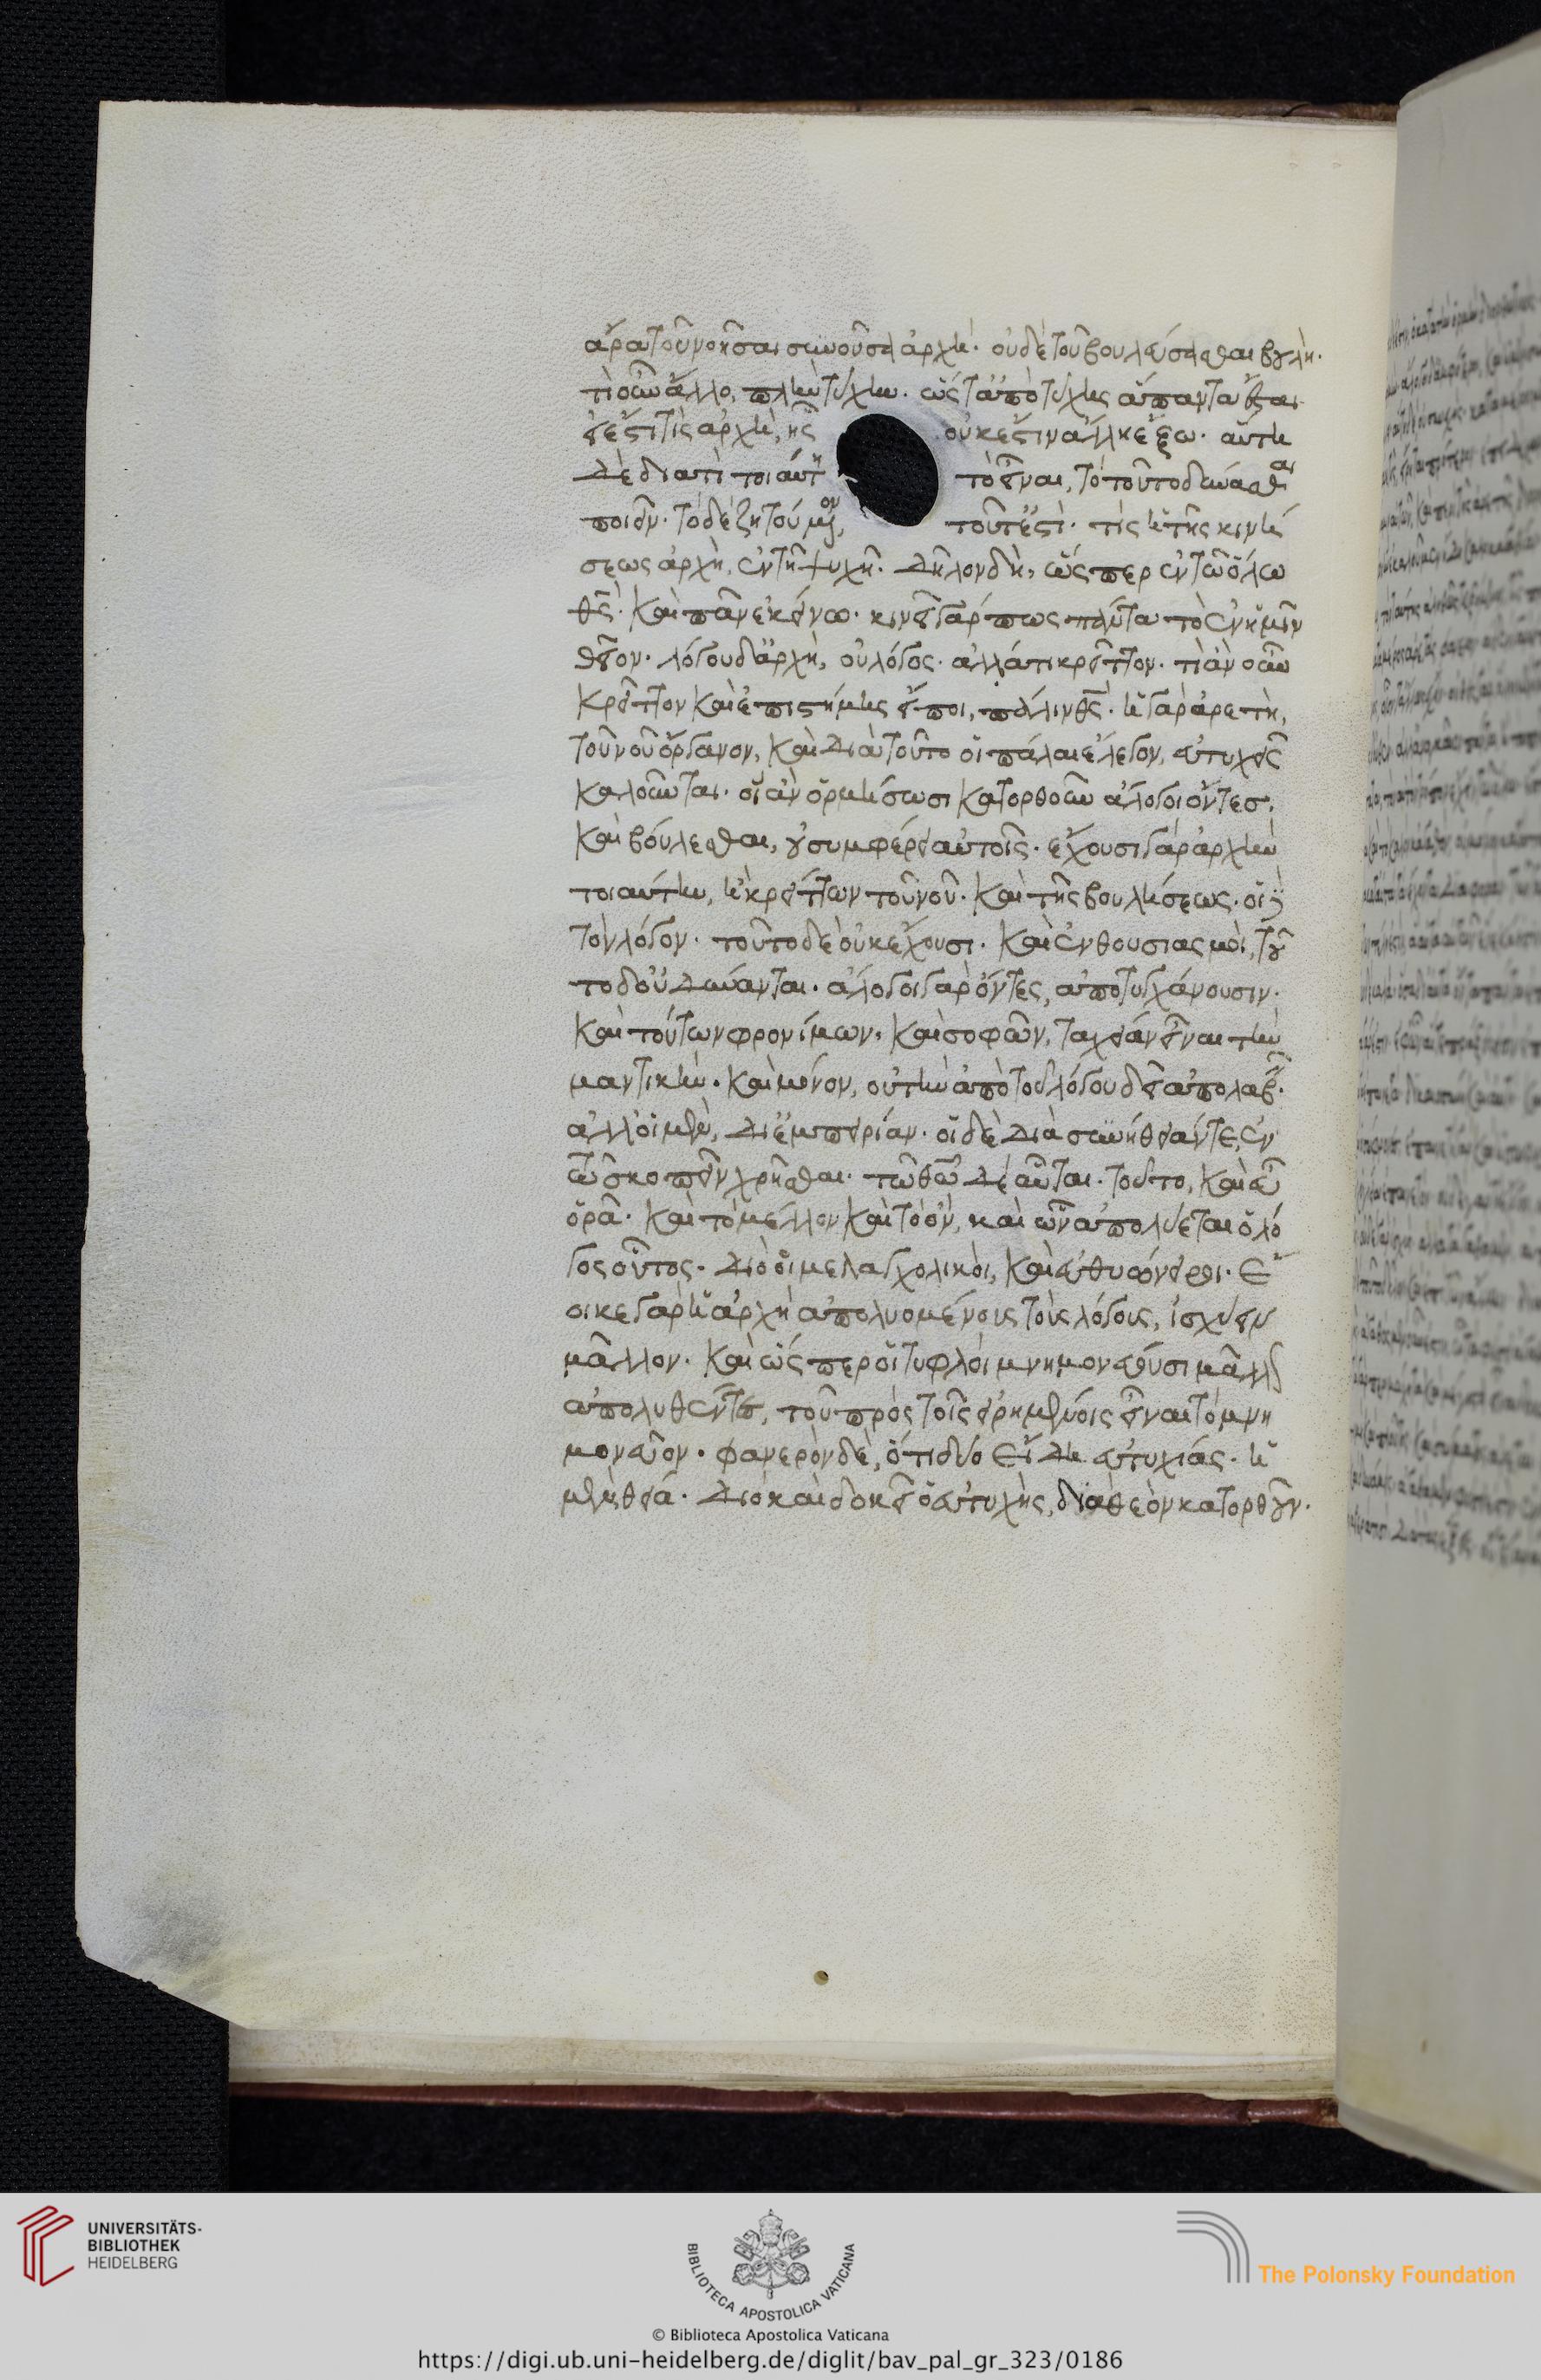 ἄρα τοῦ νοῆσαι σινοῦσα ἀρχὴ· οὐδὲ τοῦ βουλεύσασθαι βουλὴ·
τί οὖν ἄλλο, πλὴν τύχην. ὥστ' ἀπὸ τύχης ἅπαντα ἔσται
εἰ ἔστι τὶς ἀρχὴ, ἧς οὐκ ἔστιν ἄλλη ἔξω. αὕτη
δὲ διατί τοιαύτη τὸ εἶναι, τὸ τοῦτο δύνασθαι
ποιεῖν. τὸ δὲ ζητούμενον, τοῦτ' ἐστὶ. τίς ἡ τῆς κινή
σεως ἀρχὴ, ἐν τῆ ψυχῆ. δῆλον δὴ, ὥσπερ ἐν τῶ ὅλω
θεὸς. καὶ πᾶν ἐκείνω. κινεῖ γάρ πως πάντα τὸ ἐν ἡμῖν
θεῖον. λόγου δ' ἀρχὴ, οὐ λόγος. ἀλλά τι κρεῖττον. τί ἂν οὖν
κρεῖττον καὶ ἐπιστήμης εἴποι, πάλιν θεὸς. ἡ γὰρ ἀρετὴ,
τοῦ νοῦ ὄργανον, καὶ διὰ τοῦτο οἱ πάλαι ἔλεγον, εὐτυχεῖς
καλοῦνται. οἳ ἂν ὁρμήσωσι κατορθοῦν ἄλογοι ὄντες.
καὶ βούλεσθαι, οὐ συμφέρει αὐτοῖς. ἔχουσι γὰρ ἀρχὴν
τοιαύτην, ἡ κρείττων τοῦ νοῦ. καὶ τῆς βουλήσεως. οἱ δὲ
τὸν λόγον. τοῦτο δὲ οὐκ ἔχουσι. καὶ ἐνθουσιασμὸι, τοῦ
το δ' οὐ δύνανται. ἄλογοι γὰρ ὄντες, ἀποτυγχάνουσιν.
καὶ τούτων φρονίμων. καὶ σοφῶν, ταχεῖαν εἶναι τὴν
μαντικὴν. καὶ μόνον, οὐ τὴν ἀπὸ τοῦ λόγου δεῖ ἀπολαβεῖν.
ἀλλ' οἱ μὲν, δι' ἐμπειρίαν. οἱ δὲ διὰ συνήθειάν τε ἐν
τῶ σκοπεῖν χρῆσθαι. τῶ θεῶ δὲ αὗται. τοῦτο, καὶ εὖ
ὁρᾶ. καὶ τὸ μέλλον καὶ τὸ ὂν, καὶ ὧν ἀπολύεται ὁ λό
γος οὗτος. διὸ οἱ μελαγχολικὸι, καὶ εὐθυόνειροι. ἔ
οικε γὰρ ἡ ἀρχὴ ἀπολυομένους τοὺς λόγους, ἰσχύειν
μᾶλλον. καὶ ὥσπερ οἱ τυφλὸι μνημονεύουσι μᾶλλον
ἀπολυθέντες, τοῦ πρὸς τοῖς εἰρημένοις εἶναι τὸ μνη
μονεῦον. φανερὸν δὲ, ὅτι δύο εἴδη εὐτυχίας. ἡ
μὲν, θεία. διὸ καὶ δοκεῖ ὁ εὐτυχὴς, διὰ θεὸν κατορθοῦν.
UNIVERSITÄTS-
BIBLIOTHEK
HEIDELBERG
BIBLIOTECA APOSTOLICA VATICANA
The Polonsky Foundation
© Biblioteca Apostolica Vaticana
https://digi.ub.uni-heidelberg.de/diglit/bav_pal_gr_323/0186